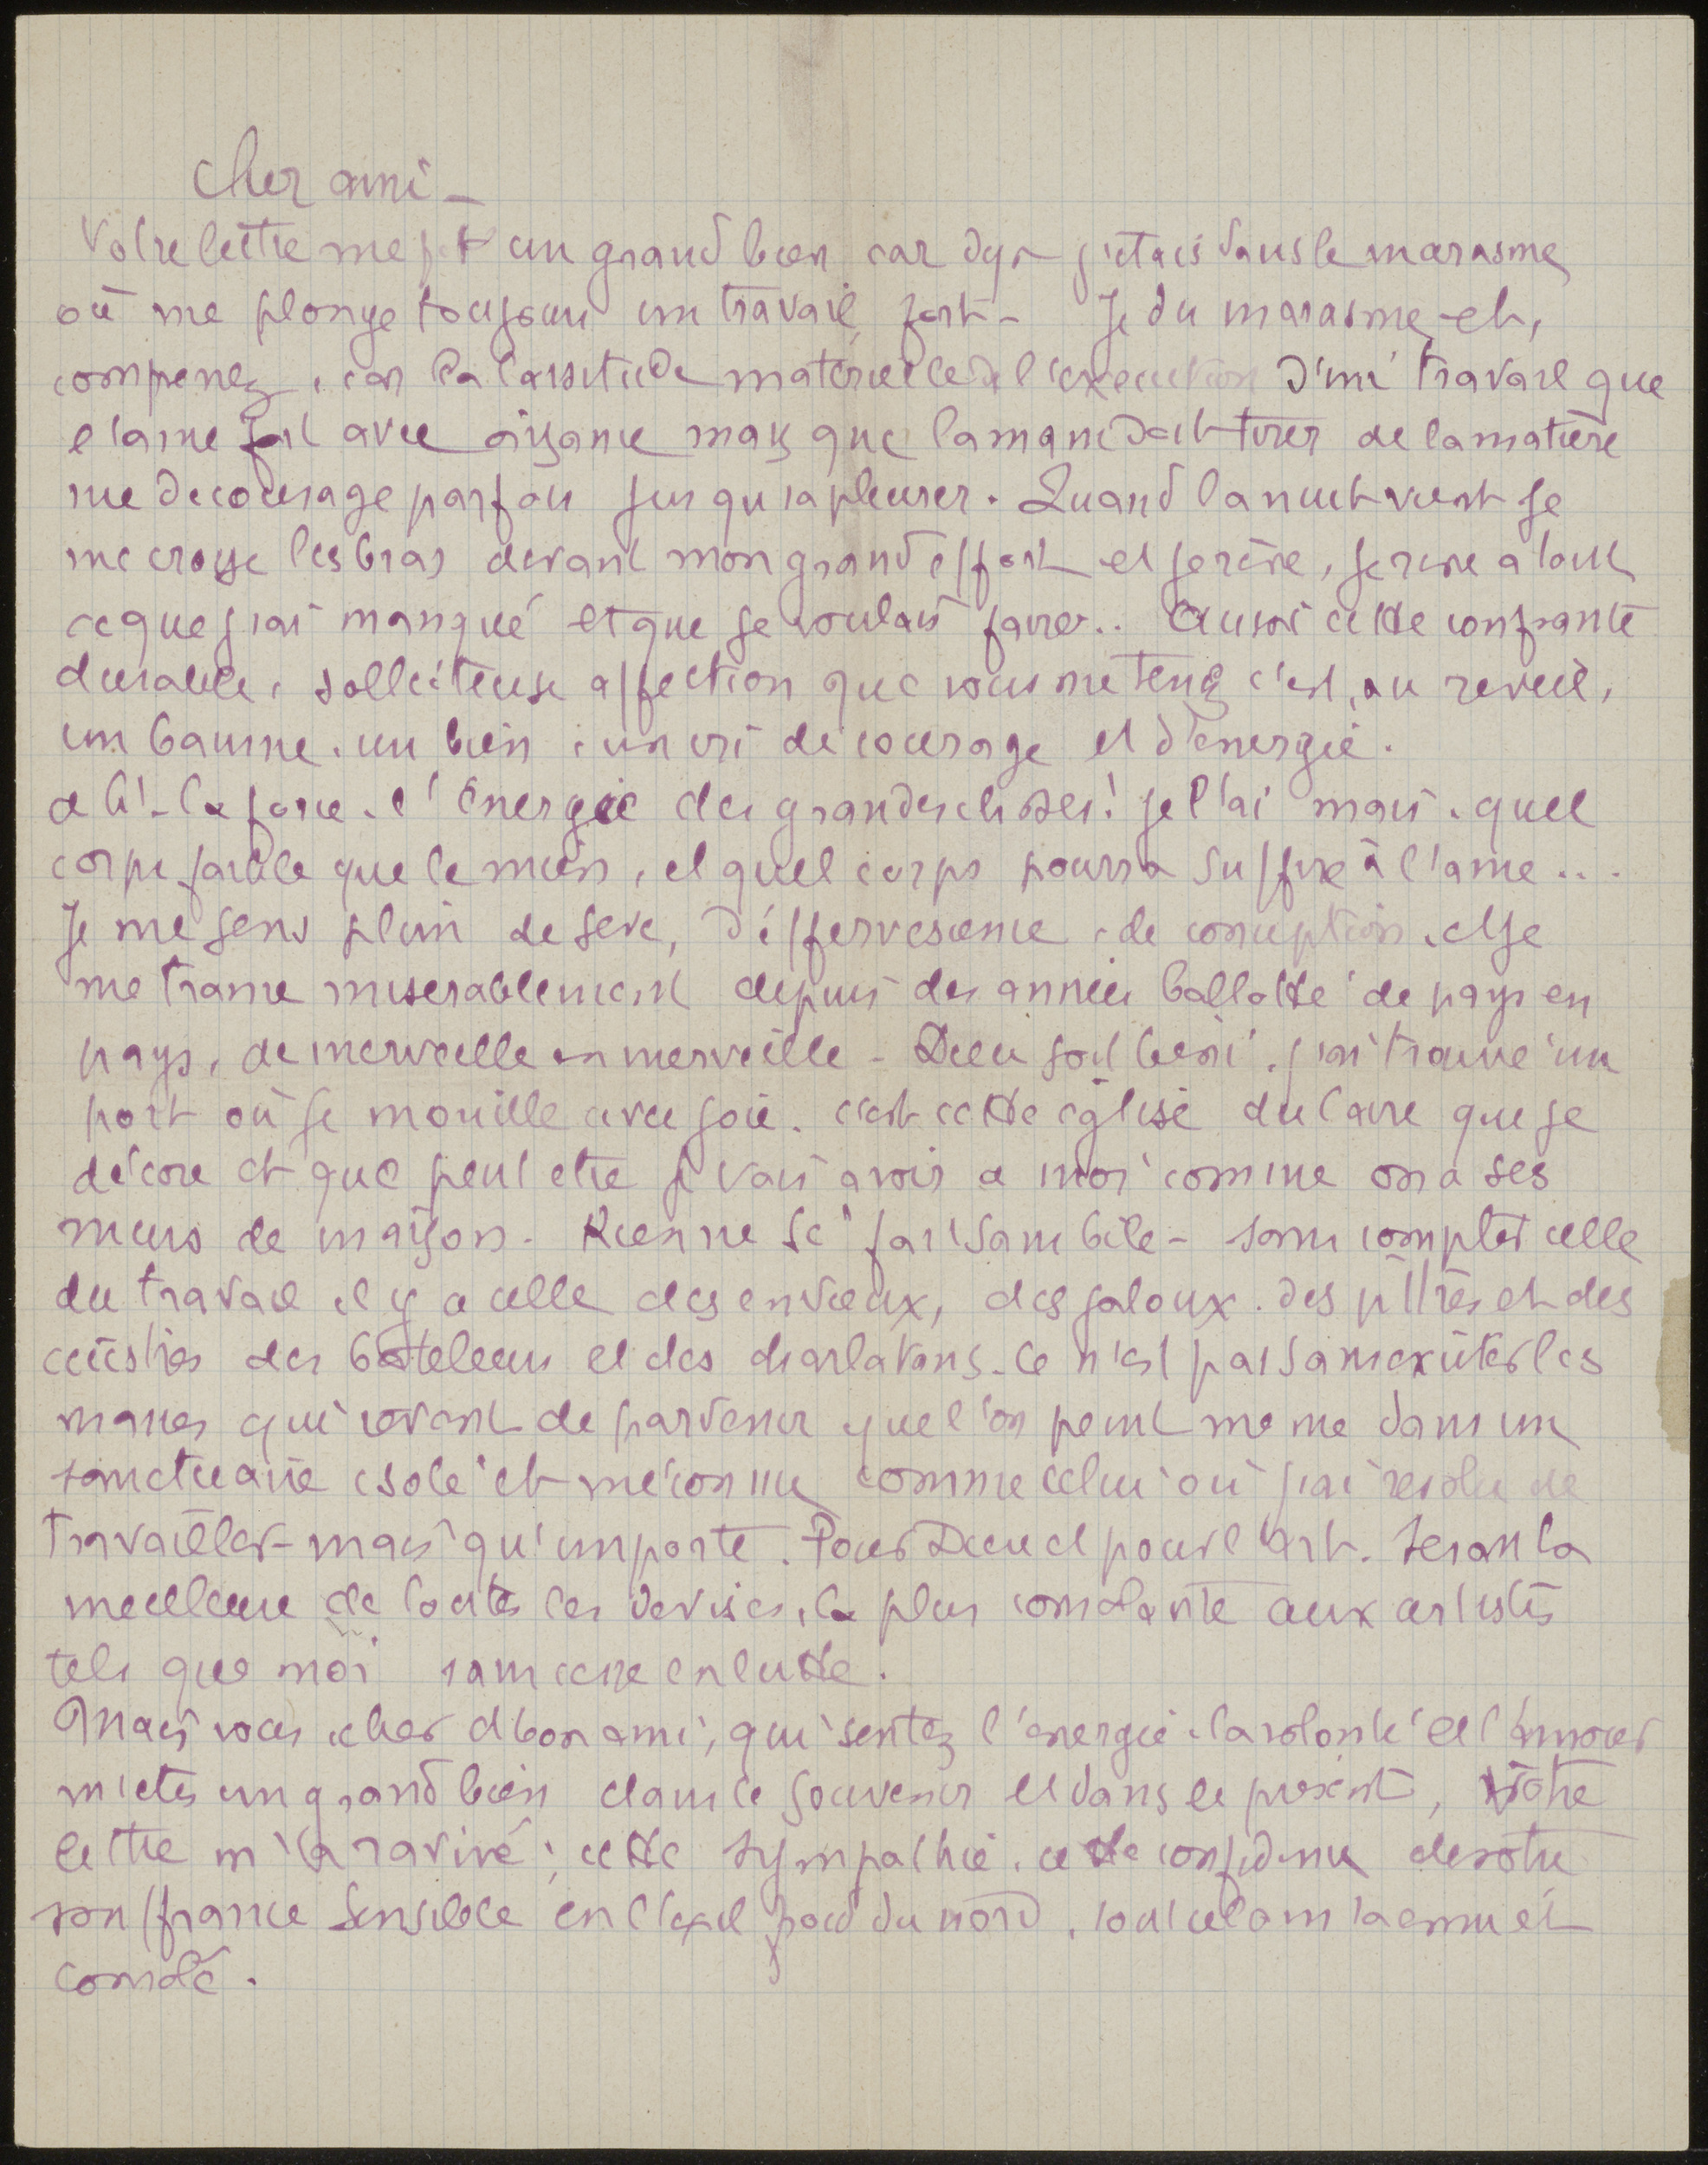 Cher ami —
Votre lettre me fit un grand bien car deja j'etais dans le marasme
où me plonge toujours un travail fort — Je dis marasme, et,
comprenez, car la lassitude matérielle de l'execution d'un travail que
l'ame fait avec aisance mais que la main doit tirer de la matière
me decourage parfois jusqu'a pleurer. Quand la nuit vient je
me croise les bras devant mon grand effort et je rève, je rève a tout
ce que j'ai manqué et que je voulais faire.. Aussi cette confiante
durable, solliciteuse affection que vous me tenez c'est, au reveil,
un baume, un bien, un cri de courage et d'energie.
ah! — la force, l'énergie des grandes choses! je l'ai mais, quel
corps faible que le mien, et quel corps pourra suffire à l'ame ...
Je me sens plein de seve, d'éffervescence, de conception, et je
me traine miserablement depuis des années ballotté de pays en
pays, de merveille en merveille — Dieu soit béni, j'ai trouvé un
port où je mouille avec joie. c'est cette église du Caire que je
décore et que peut etre je vais avoir a moi comme on a ses
murs de maison. Rien ne se fait sans bile — sans compter celle
du travail il y a celle des envieux, des jaloux. des pitres et des
cuistres des bateleurs et des charlatans. Ce n'est pas sans exciter les
manes qui revent de parvenir que l'on peint meme dans un
sanctuaire isolé et méconnu comme celui où j'ai résolu de
travailler — mais qu'importe. Pour Dieu et pour l'Art. Seran la
meilleure de toutes les devises, la plus consolante aux artistes
tels que moi sans cesse en lutte.
Mais vous, cher et bon ami, qui sentez l'energie, la volonté et l'amour
m'etes un grand bien dans le souvenir et dans le présent, Vôtre
lettre m'a ravivé; cette sympathie, cette confidence de votre
souffrance sensible en l'exil froid du nord, tout cela m'a emu et
consolé.